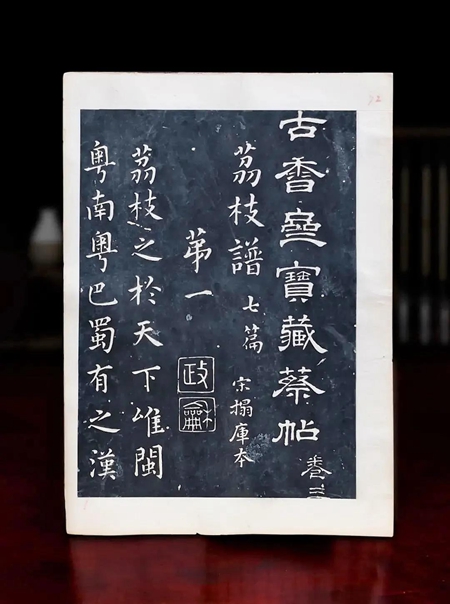 古香齋寶藏蔡帖 卷
荔枝譜 七篇 宋搨庫本
第一
政龢
荔枝之於天下唯閩
粵南粵巴蜀有之漢